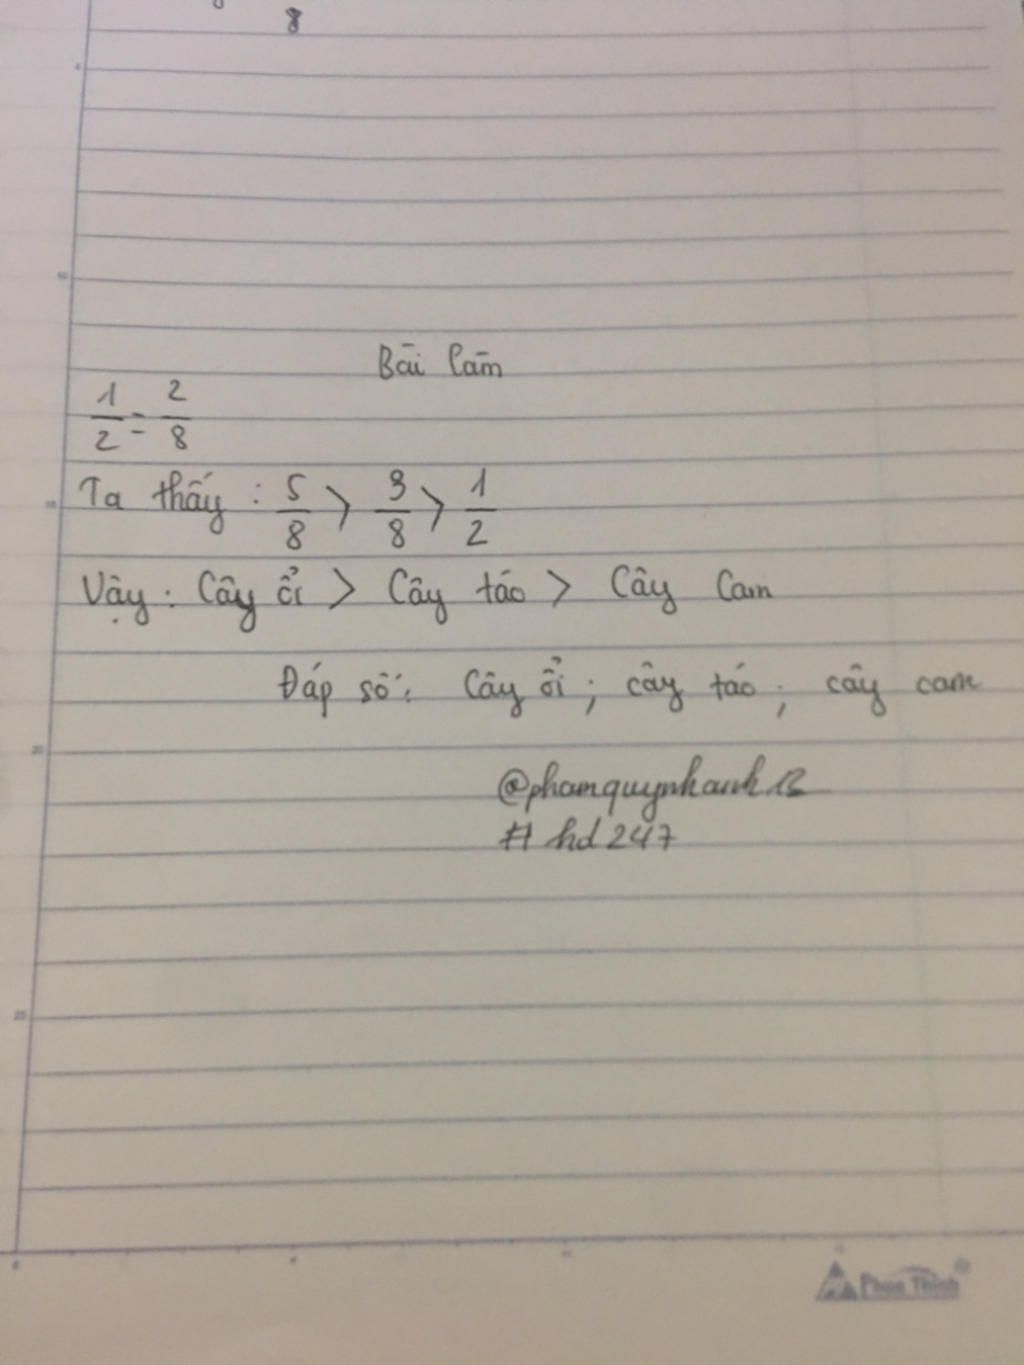 8
Bài làm
1/2 = 2/8
Ta thấy : 5/8 > 3/8 > 1/2
Vậy : Cây ổi > Cây táo > Cây Cam
Đáp số : Cây ổi ; cây táo ; cây cam
@phamquynhanh12
# hd247
Phúc Thịnh